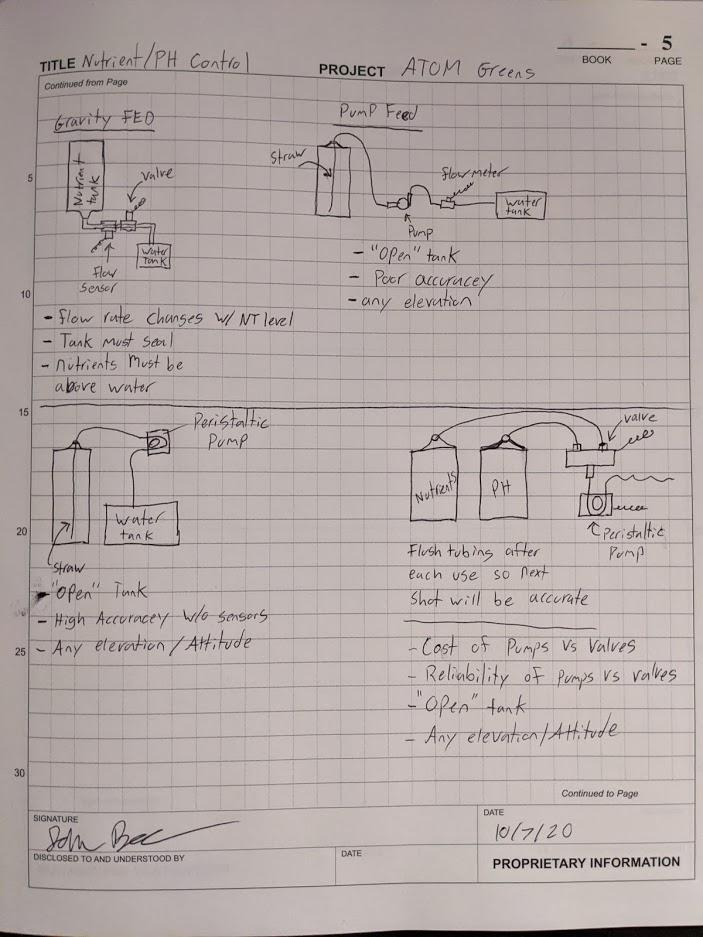 - 5
BOOK PAGE
TITLE Nutrient/PH Control
PROJECT ATOM Greens
Continued from Page
Gravity FED
Nutrient
tank
valve
flow
sensor
water
tank
- flow rate changes w/ NT level
- Tank must seal
- nutrients must be
above water
Pump Feed
Straw
flow meter
Pump
water
tank
- "Open" tank
- Poor accuracey
- any elevation
5
10
15
20
25
30
Peristaltic
Pump
water
tank
straw
- "Open" Tank
- High Accuracey w/o sensors
- Any elevation / Attitude
valve
Nutrients
PH
Peristaltic
Pump
Flush tubing after
each use so next
shot will be accurate
- Cost of Pumps vs Valves
- Reliability of pumps vs valves
- "Open" tank
- Any elevation/Attitude
Continued to Page
SIGNATURE
DATE
10/7/20
DISCLOSED TO AND UNDERSTOOD BY
DATE
PROPRIETARY INFORMATION